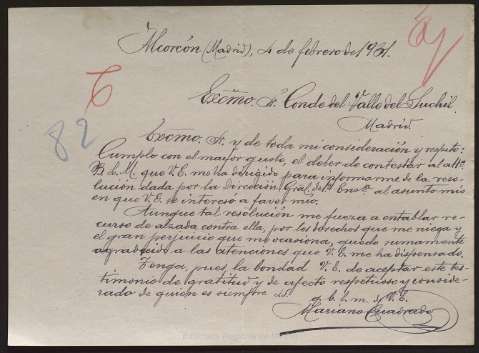 Alcorcón (Madrid), 4 de febrero de 1931.
Excmo. Sr. Conde del Valle del Suchil.
Madrid.
82
Excmo. Sr. y de toda mi consideración y respeto:
Cumplo con el mayor gusto, el deber de contestar al att.º
B. L. M. que V. E. me ha dirigido para informarme de la reso-
lución dada por la Dirección Gral. de 1ª Enzª al asunto mio
en que V. E. se intereso a favor mio.
Aunque tal resolución me fuerza a entablar re-
curso de alzada contra ella, por los derechos que me niega y
el gran perjuicio que me ocasiona, quedo sumamente
agradecido a las atenciones que V. E. me ha dispensado.
Tenga, pues la bondad V. E. de aceptar este tes-
timonio de gratitud y de afecto respetuoso y conside-
rado de quien es siempre
q. b. l. m. de V. E.
Mariano Cuadrado